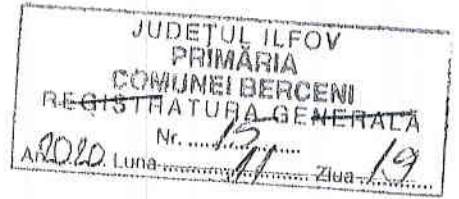 JUDEȚUL ILFOV
PRIMĂRIA
COMUNEI BERCENI
REGISTRATURA GENERALĂ
Nr. 15
Anul 2020 Luna 11 Ziua 19